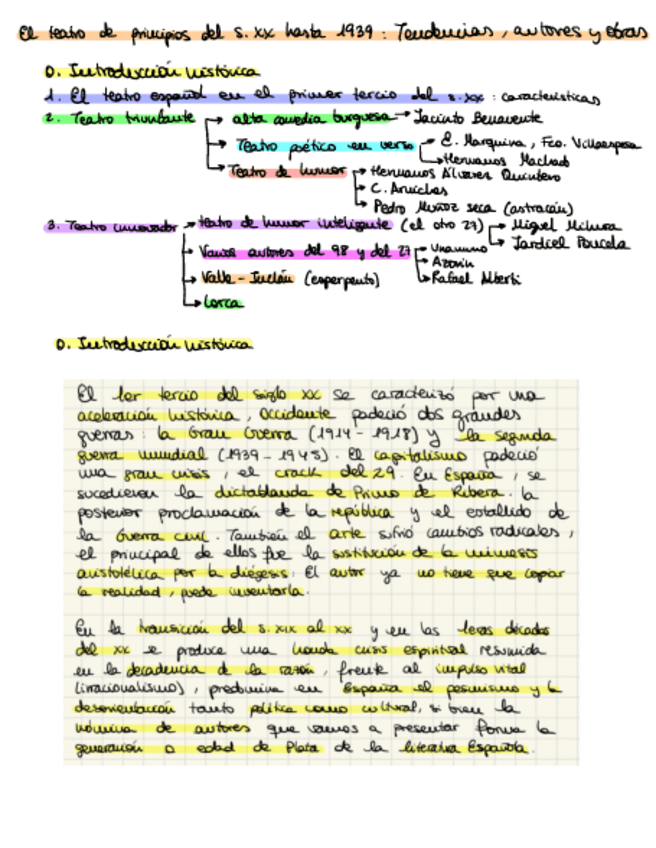 El teatro de principios del s. XX hasta 1939: Tendencias, autores y obras
0. Introducción histórica
1. El teatro español en el primer tercio del s. XX: características
2. Teatro triunfante → alta comedia burguesa → Jacinto Benavente
→ Teatro poético en verso → E. Marquina, Fco. Villaespesa
→ Hermanos Machado
→ Teatro de humor → Hermanos Álvarez Quintero
→ C. Arniches
→ Pedro Muñoz Seca (astracán)
3. Teatro innovador → teatro de humor inteligente (el otro 27) → Miguel Mihura
→ Jardiel Poncela
→ Varios autores del 98 y del 27 → Unamuno
→ Azorín
→ Rafael Alberti
→ Valle-Inclán (esperpento)
→ Lorca
0. Introducción histórica
El 1er tercio del siglo XX se caracterizó por una
aceleración histórica, Occidente padeció dos grandes
guerras: la Gran Guerra (1914-1918) y la segunda
guerra mundial (1939-1945). El capitalismo padeció
una gran crisis, el crack del 29. En España, se
sucedieron la dictablanda de Primo de Ribera. La
posterior proclamación de la república y el estallido de
la Guerra civil. También el arte sufrió cambios radicales,
el principal de ellos fue la sustitución de la mímesis
aristotélica por la diégesis: El autor ya no tiene que copiar
la realidad, puede inventarla.
En la transición del s. XIX al XX y en las 1eras décadas
del XX se produce una honda crisis espiritual resumida
en la decadencia de la razón, frente al impulso vital
(irracionalismo), predomina en España el pesimismo y la
desorientación tanto política como cultural, si bien la
nómina de autores que vamos a presentar forma la
generación o edad de Plata de la literatura Española.